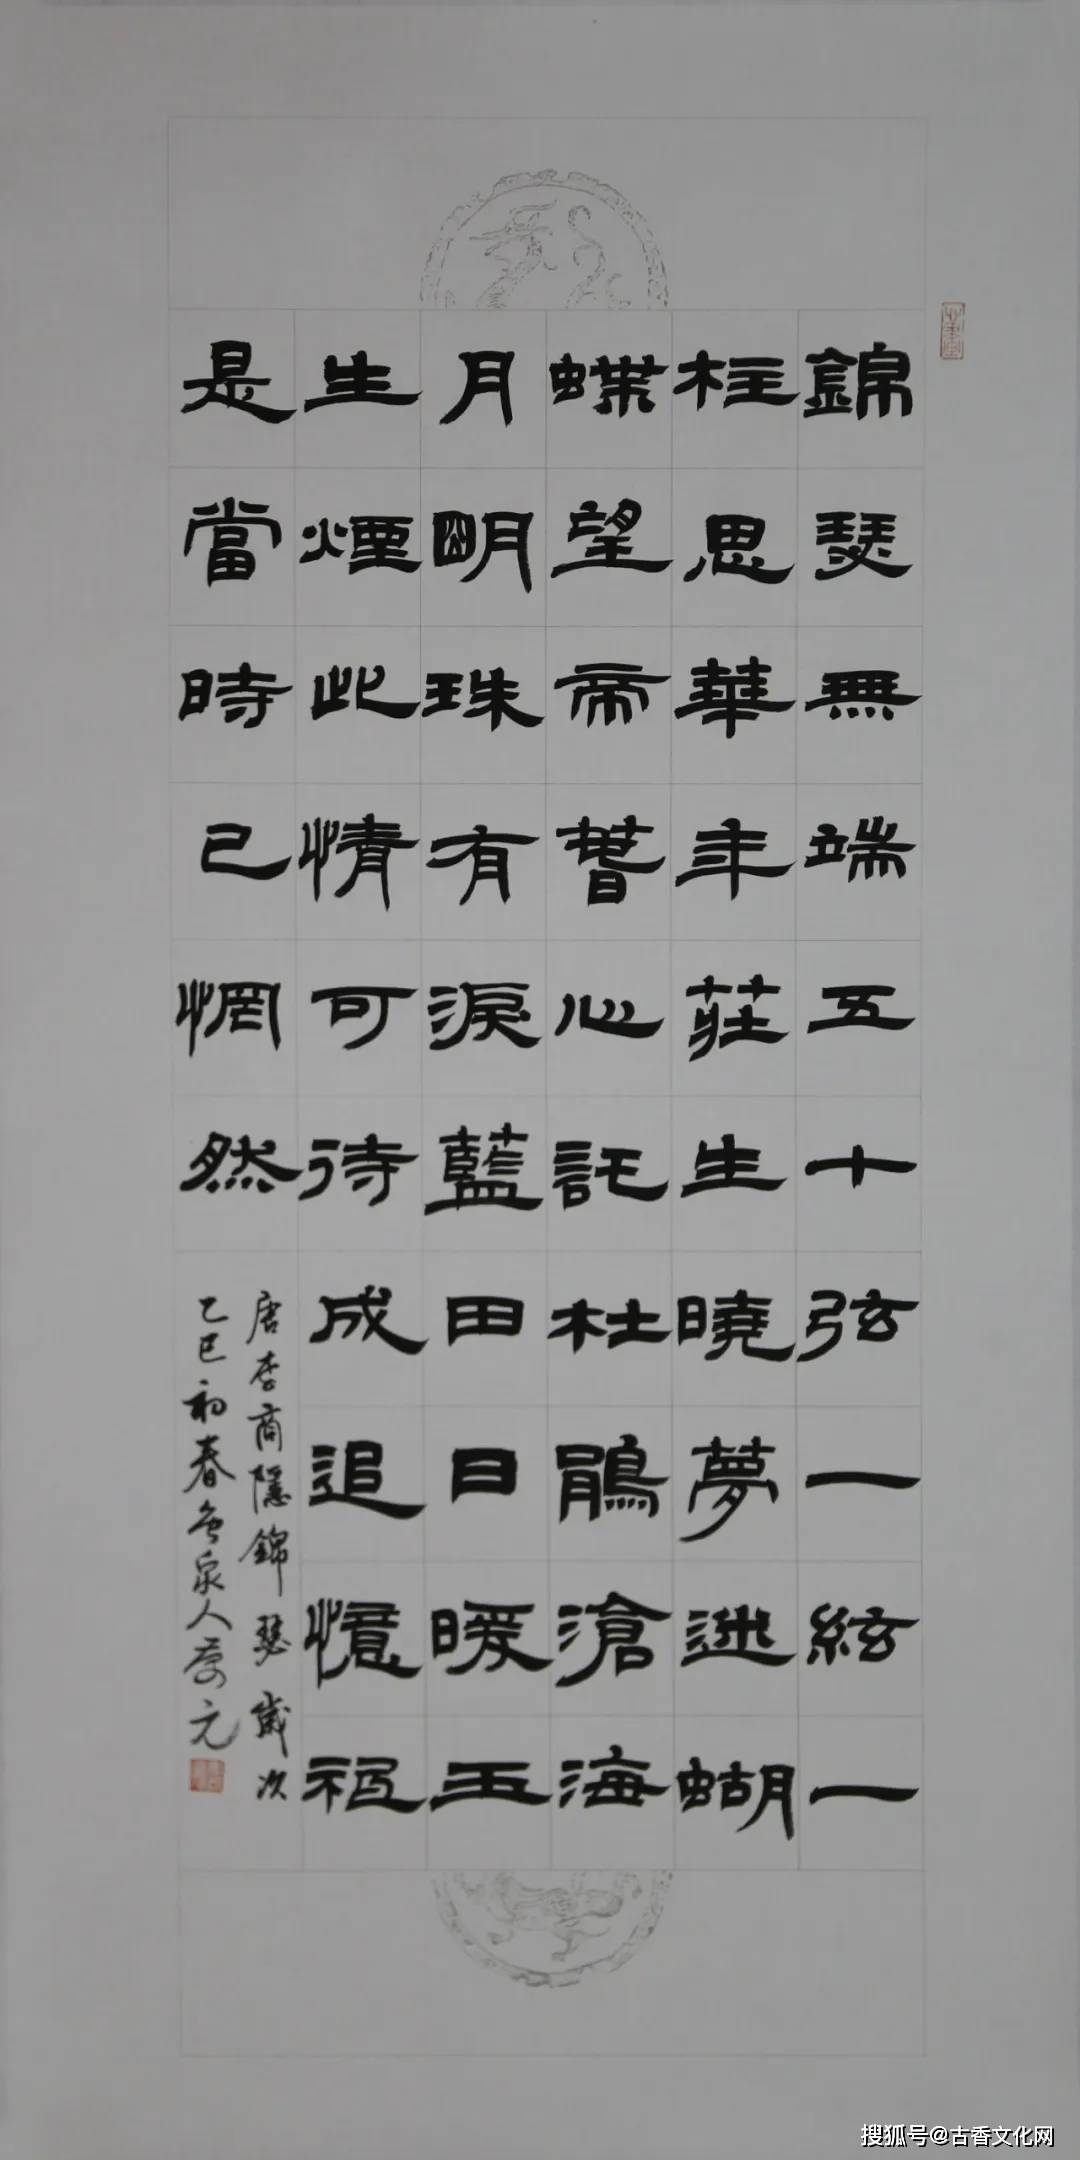 錦瑟無端五十弦一絃一
柱思華年莊生曉夢迷蝴
蝶望帝萅心託杜鵑滄海
月朙珠有淚藍田日暖玉
生煙此情可待成追憶祗
是當時已惘然
唐李商隱錦瑟歲次
乙巳初春泉人元
搜狐号@古香文化网